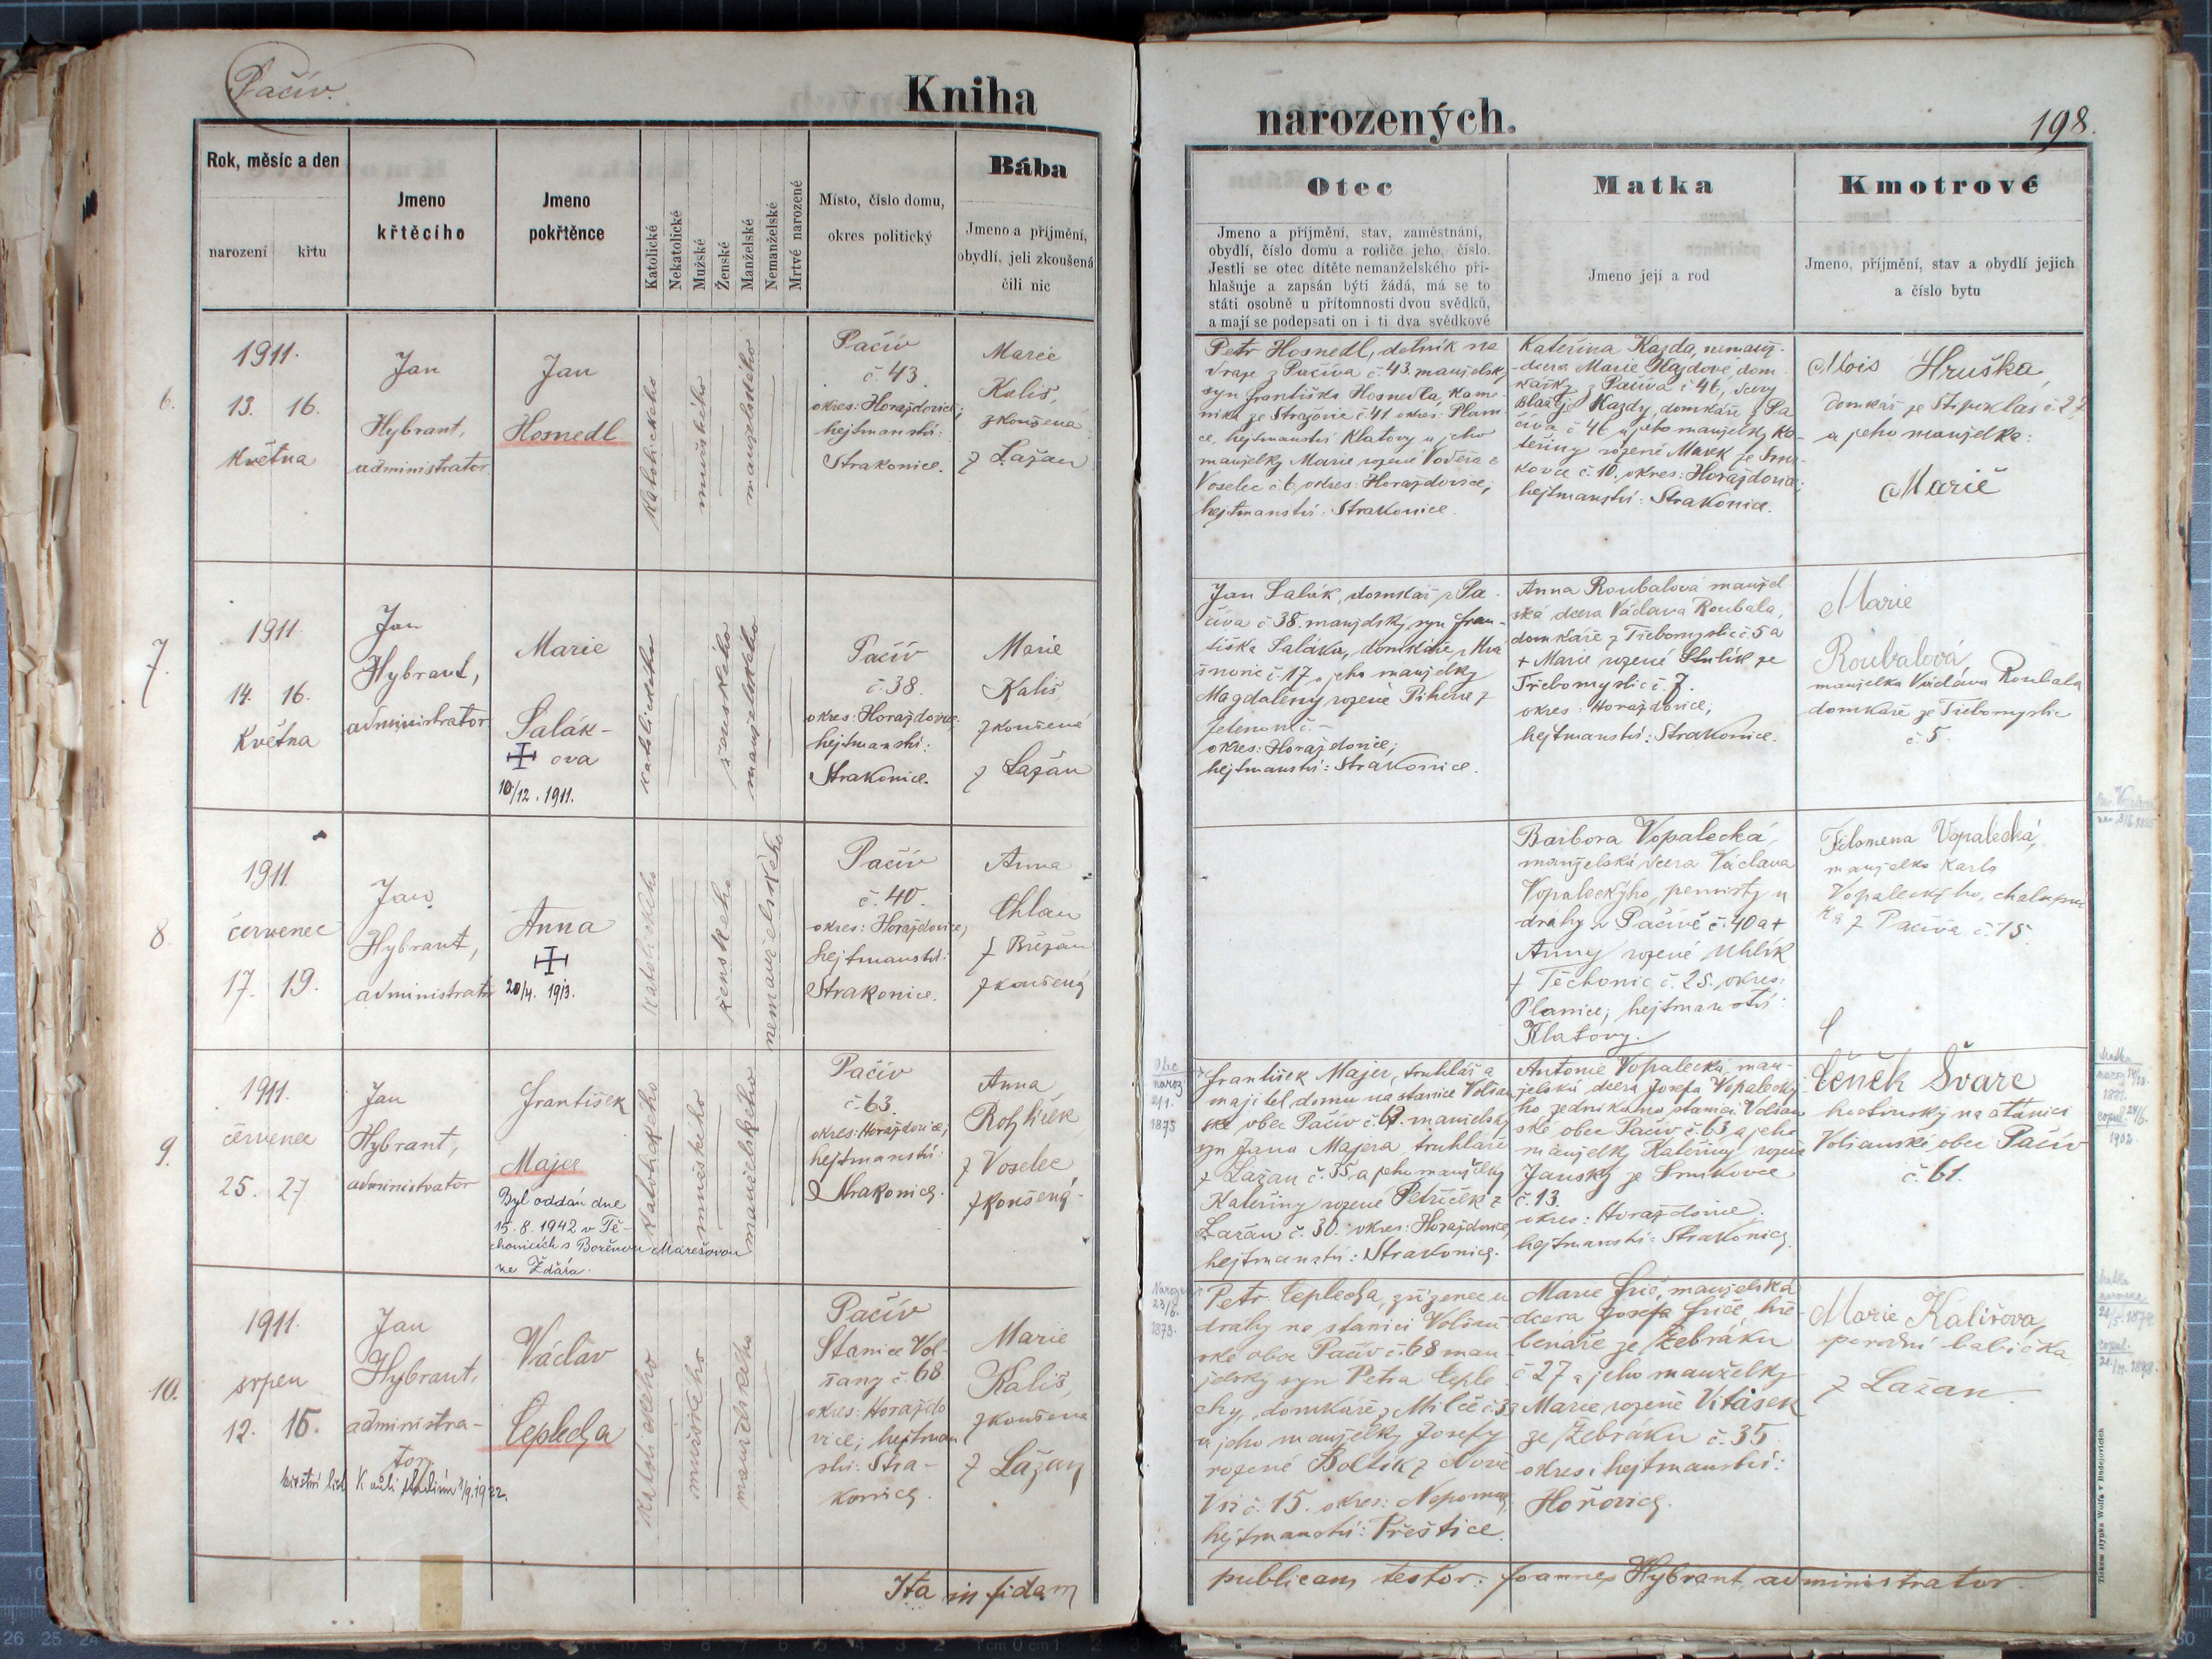 Pačív.
Kniha
narozených.
198.
Rok, měsíc a den
narození
křtu
Jmeno
křtěcího
Jmeno
pokřtěnce
Katolické
Nekatolické
Mužské
Ženské
Manželské
Nemanželské
Mrtvé narozené
Místo, číslo domu,
okres politický
Bába
Jmeno a příjmění,
obydlí, jeli zkoušená
čili nic
Otec
Jmeno a příjmění, stav, zaměstnání,
obydlí, číslo domu a rodiče jeho, číslo.
Jestli se otec dítěte nemanželského při-
hlašuje a zapsán býti žádá, má se to
státi osobně u přítomnosti dvou svědků,
a mají se podepsati on i ti dva svědkové
Matka
Jmeno její a rod
Kmotrové
Jmeno, příjmění, stav a obydlí jejich
a číslo bytu
6.
1911.
13. 16.
Května
Jan
Hybrant,
administrator
Jan
Hosnedl
katolického
mužského
manželského
Pačív
č. 43.
okres: Horažďovice;
hejtmanství:
Strakonice.
Marie
Kališ,
zkoušená
z Lažan
Petr Hosnedl, dělník na
draze z Pačíva č. 43. manželský
syn Františka Hosnedla, kame-
níka ze Strážovic č. 41 okres: Plani-
ce, hejtmanství Klatovy a jeho
manželky Marie rozené Voděra z
Voselec č. 6 okres: Horažďovice;
hejtmanství: Strakonice.
Kateřina Kazda, nemanž-
dcera Marie Kazdové, dom-
kářky z Pačíva č 46, dcery
Blažeje Kazdy, domkáře z Pa
číva č 46 a jeho manželky Ka-
teřiny rozené Marek ze Smr-
kovce č. 10. okres: Horažďovice;
hejtmanství: Strakonice.
Alois Hruška,
domkář ze Štipoklas č. 27
a jeho manželka:
Marie
7.
1911.
14. 16.
Května
Jan
Hybrant,
administrator
Marie
Salák-
ova
10/12. 1911.
katolického
ženského
manželského
Pačív
č. 38.
okres: Horažďovice,
hejtmanství:
Strakonice.
Marie
Kališ
zkoušená
z Lažan
Jan Salák, domkář z Pa-
číva č 38. manželský syn Fran-
tiška Saláka, domkáře z
č. 17 a jeho manželky
Magdalény rozené z
okres: Horažďovice;
hejtmanství: Strakonice.
Anna Roubalová manžel-
ská dcera Václava Roubala,
domkáře z Třebomyslic č 5 a
+ Marie rozené ze
Třebomyslic č. 7.
okres: Horažďovice;
hejtmanství: Strakonice.
Marie
Roubalová,
manželka Václava Roubala
domkáře ze Třebomyslic
č. 5.
8.
1911.
červenec
17. 19.
Jan
Hybrant,
administrator
Anna
20/4. 1913.
katolického
ženského
nemanželského
Pačív
č. 40.
okres: Horažďovice;
hejtmanství:
Strakonice.
Anna
Chlan
z Břežan
zkoušená
Barbora Vopalecká,
manželská dcera Václava
Vopaleckýho, pensisty u
dráhy v Pačívě č. 40 a +
Anny rozené Uhlík
z Těchonic č. 25. okres:
Planice, hejtmanství:
Klatovy.
Filomena Vopalecká,
manželka Karla
Vopaleckýho, chalupní
ka z Pačíva č. 15.
9.
1911.
červenec
25. 27
Jan
Hybrant,
administrator
František
Majer
Byl oddán dne
15. 8. 1942 v Tě-
chonicích s Boženou Marešovou
ze Žďáru.
katolického
mužského
manželského
Pačív
č. 63.
okres: Horažďovice,
hejtmanství:
Strakonice.
Anna
z Voselec
zkoušená
Otec
naroz
2/1.
1875
František Majer, truhlář a
majitel domu na stanice Volšan
ské obec Pačív č. 67. manželský
syn Jana Majera, truhláře
z Lažan č. 35 a jeho manželky
Kateřiny rozené Petříček z
Lažan č. 30. okres: Horažďovice,
hejtmanství: Strakonice.
Antonie Vopalecká, man-
želská dcera Josefa Vopalecký
ho zedníka na stanici Volšan
ské obec Pačív č. 63 a jeho
manželky Kateřiny rozené
Janský ze Smrkovce
č. 13.
okres: Horažďovice.
hejtmanství: Strakonice.
Čeněk Švarc
hostinský na stanici
Volšanské obec Pačív
č. 61.
Matka
1881.
copul. 24/6.
1902.
10.
1911.
srpen
12. 15.
Jan
Hybrant,
administra-
tor
křestní list K vůli studiím 1/9. 1922.
Václav
Teplecha
katolického
mužského
manželského
Pačív
Stanice Vol-
šany č. 68
okres: Horažďo
vice; hejtman
ství: Stra-
konice.
Marie
Kališ,
zkoušená
z Lažan
Naroz
23/6.
1873.
Petr Teplecha, zřízenec u
dráhy na stanici Volšan-
ské obec Pačív č. 68 man-
želský syn Petra Teple-
chy, domkáře z Milče č 33
a jeho manželky Josefy
rozené Boltík z Nové
Vsi č. 15. okres: Nepomuk
hejtmanství: Přeštice.
Marie Frič, manželská
dcera Josefa Friče, hře-
benáře ze Žebráku
č 27 a jeho manželky
Marie rozené Vitásek
ze Žebráku č. 35
okres i hejtmanství:
Hořovice.
Marie Kališova,
porodní babička
z Lažan
Matka
24/5. 1874.
copul.
21/11. 1898.
Ita in fidem
publicam testor: Joannes Hybrant administrator.
Tiskem Wolfa v Budějovicích